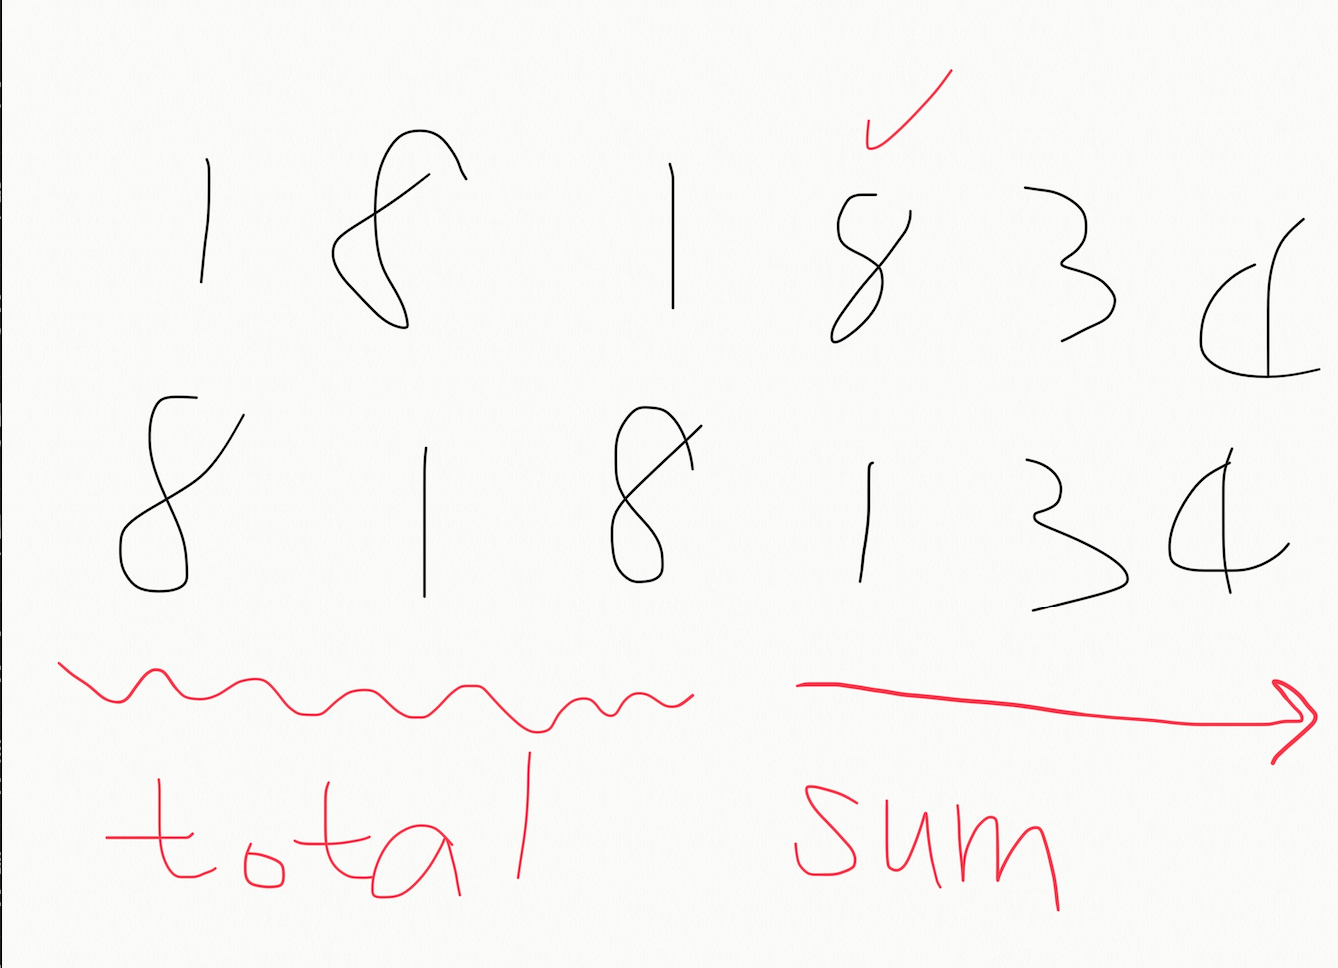 1 8 1 8 3 4
8 1 8 1 3 4
total sum